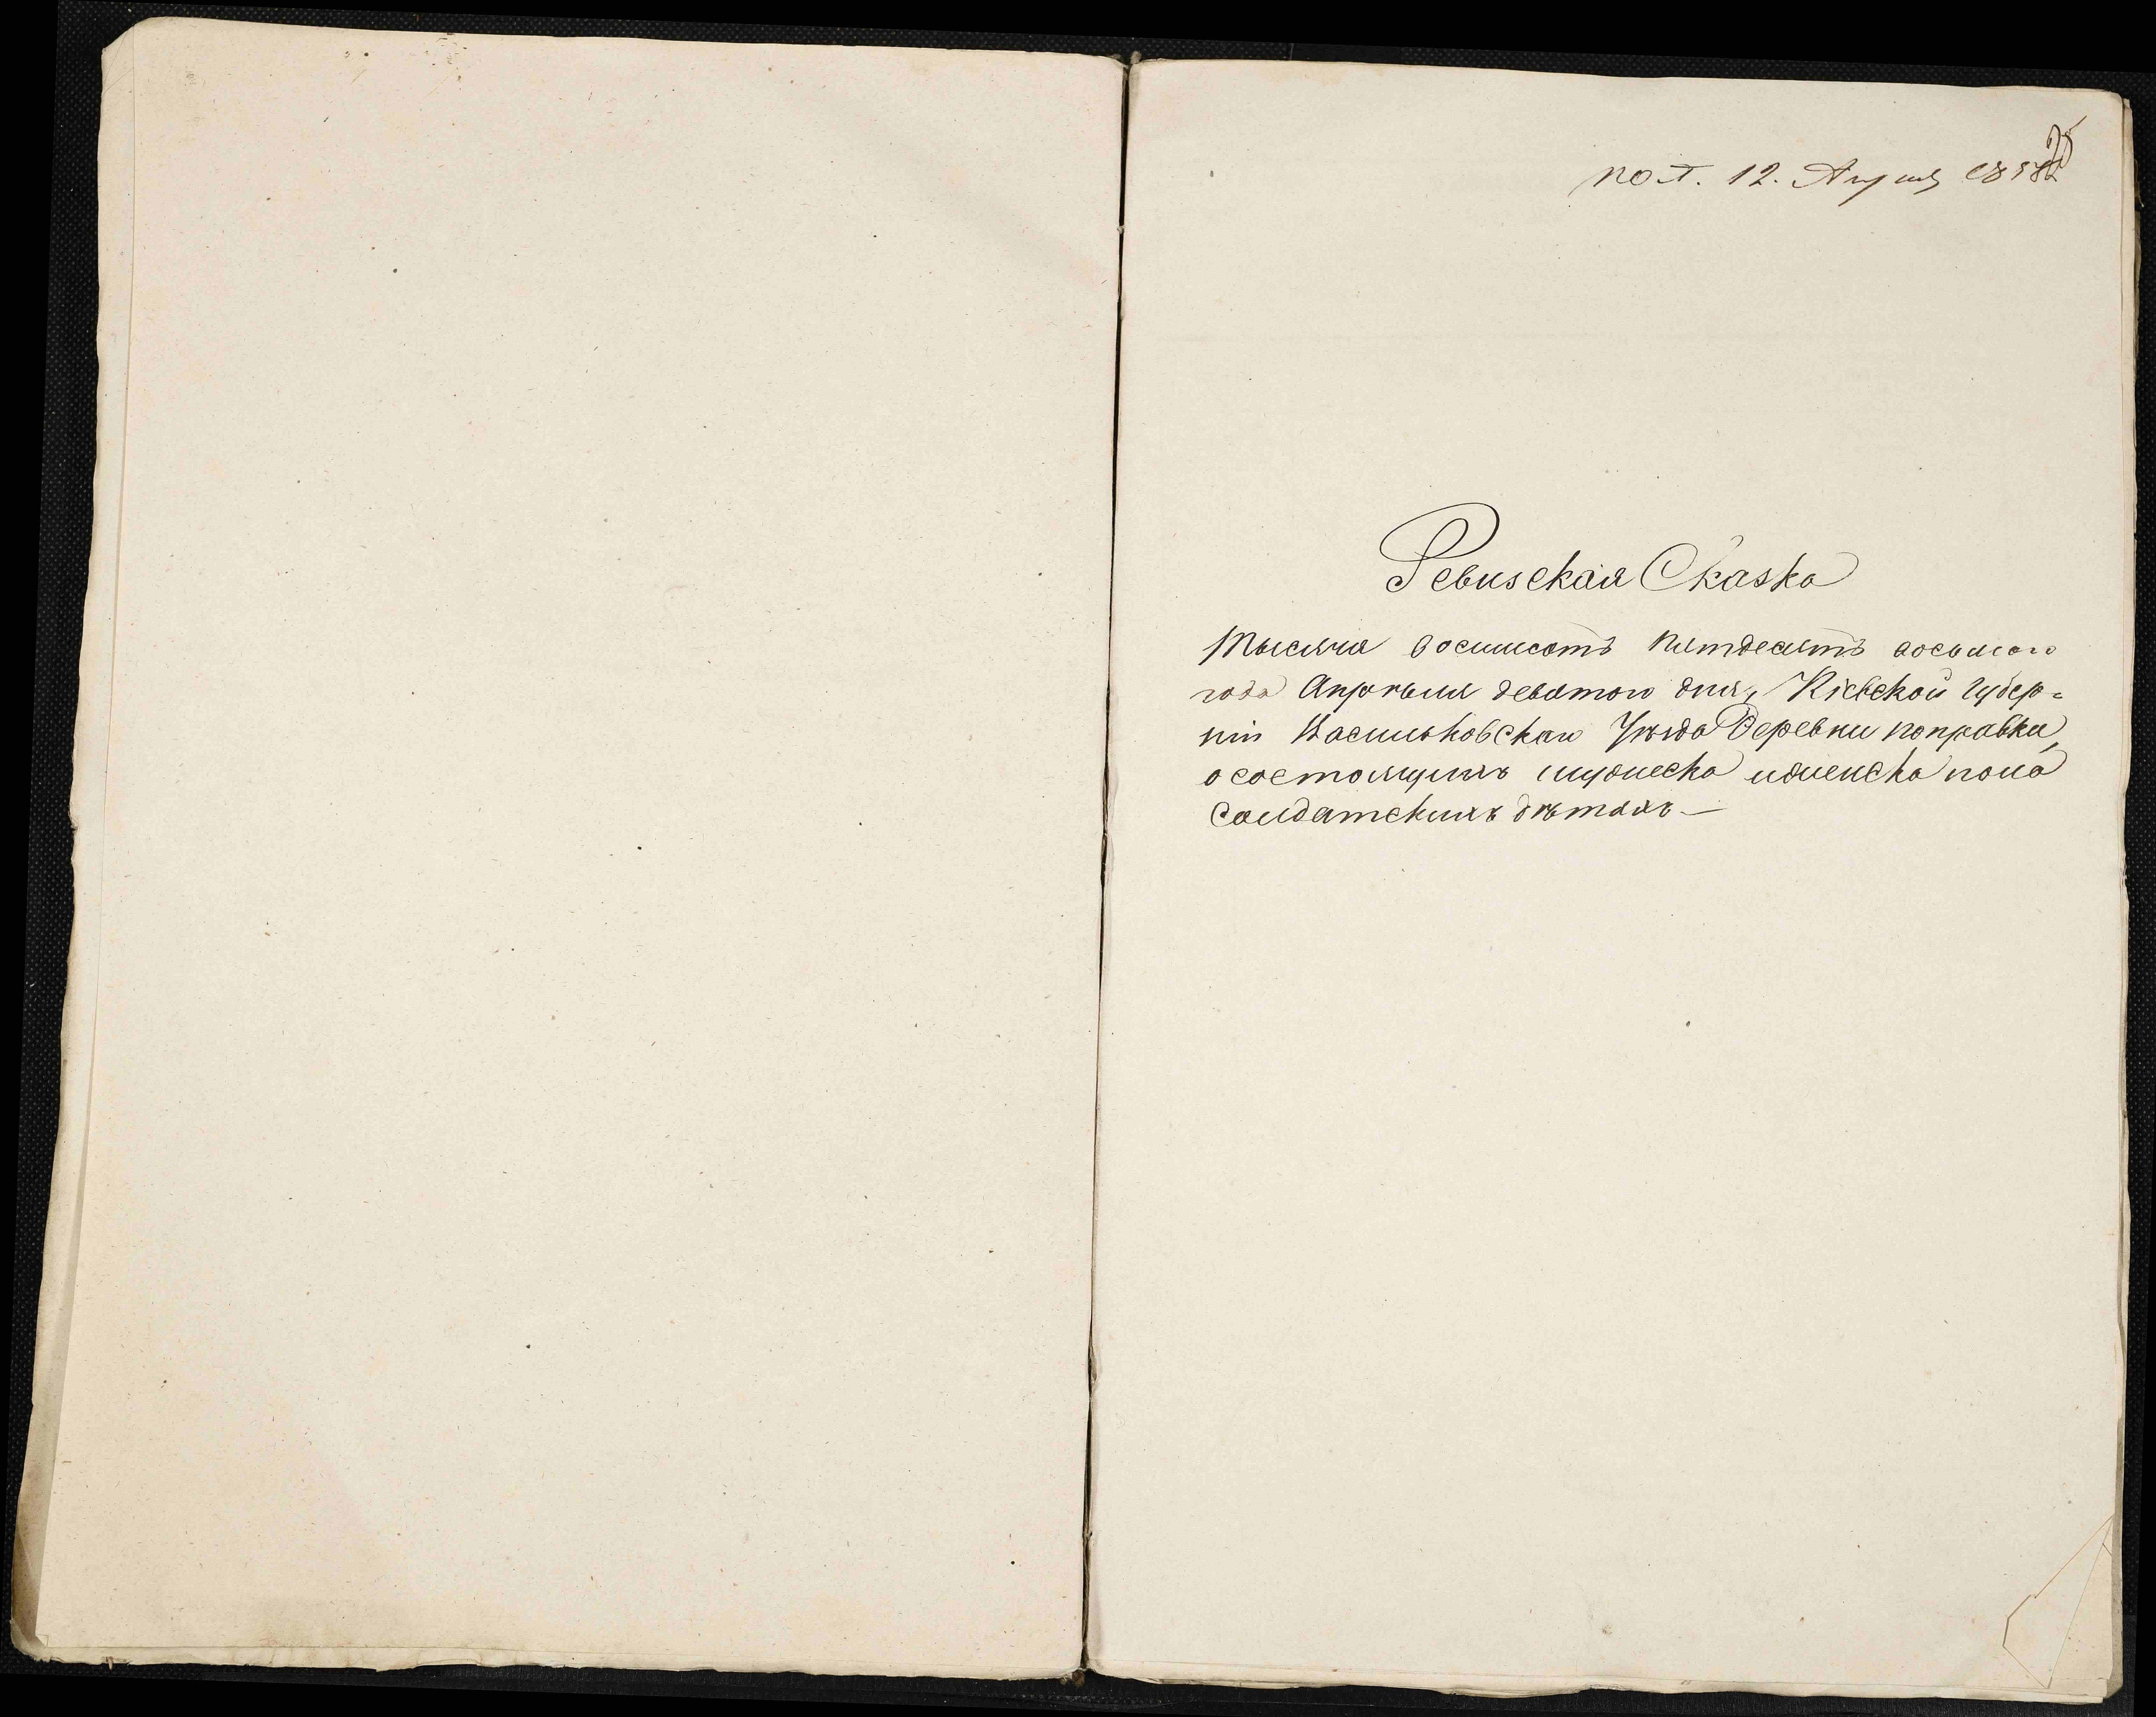 пол. 12. Апреля 1858
Ревизская Сказка
Тысяча восимсотъ пятдесятъ восьмого
года Апрѣля девятого дня, Кіевской губер=
ніи Васильковскаго Уѣзда Деревни поправки,
о состоящихъ мужеска иженска пола
Солдатскихъ дѣтяхъ —